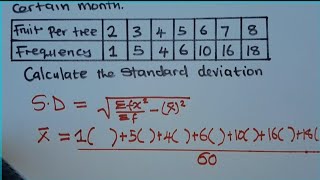 certain month.
Fruit per tree 2 3 4 5 6 7 8
Frequency 1 5 4 6 10 16 18
Calculate the standard deviation
S.D = √(Σfx²/Σf − (x̄)²)
x̄ = 1( )+5( )+4( )+6( )+10( )+16( )+18(
60